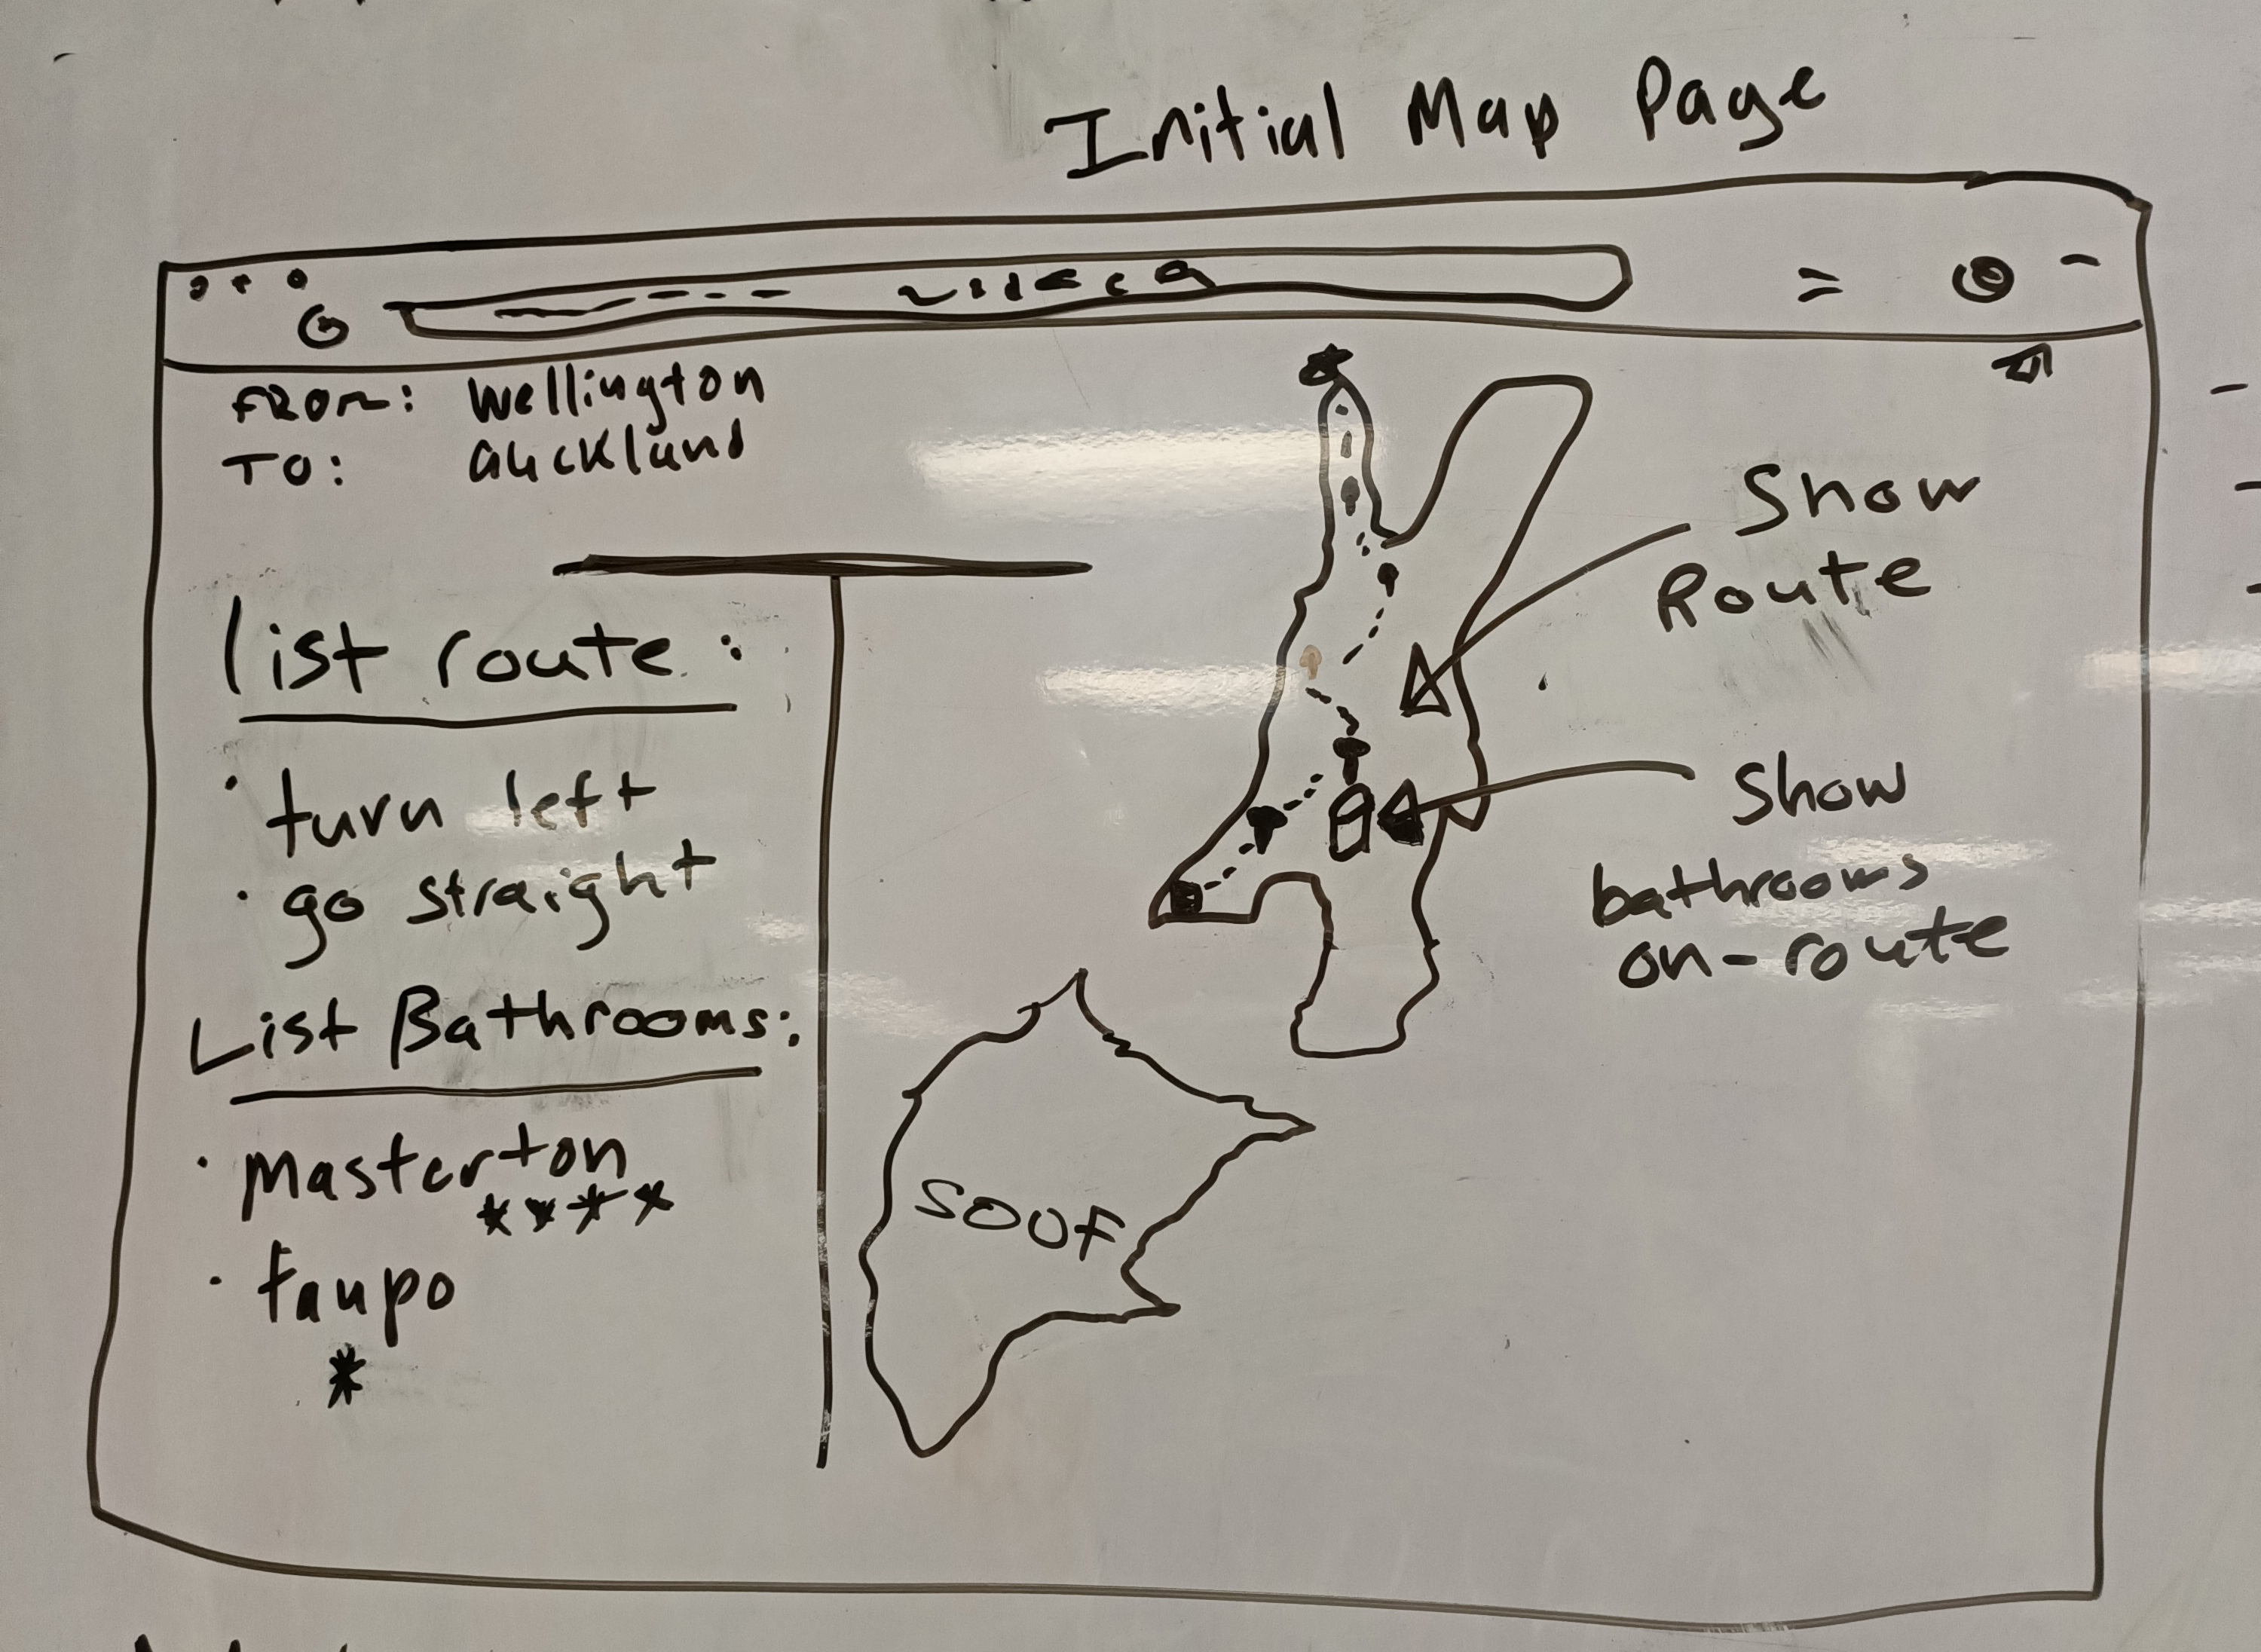 Initial Map Page
FROM: Wellington
TO: auckland
list route:
· turn left
· go straight
List Bathrooms:
· Masterton
****
· taupo
*
Show
Route
Show
bathrooms
on-route
SOUF